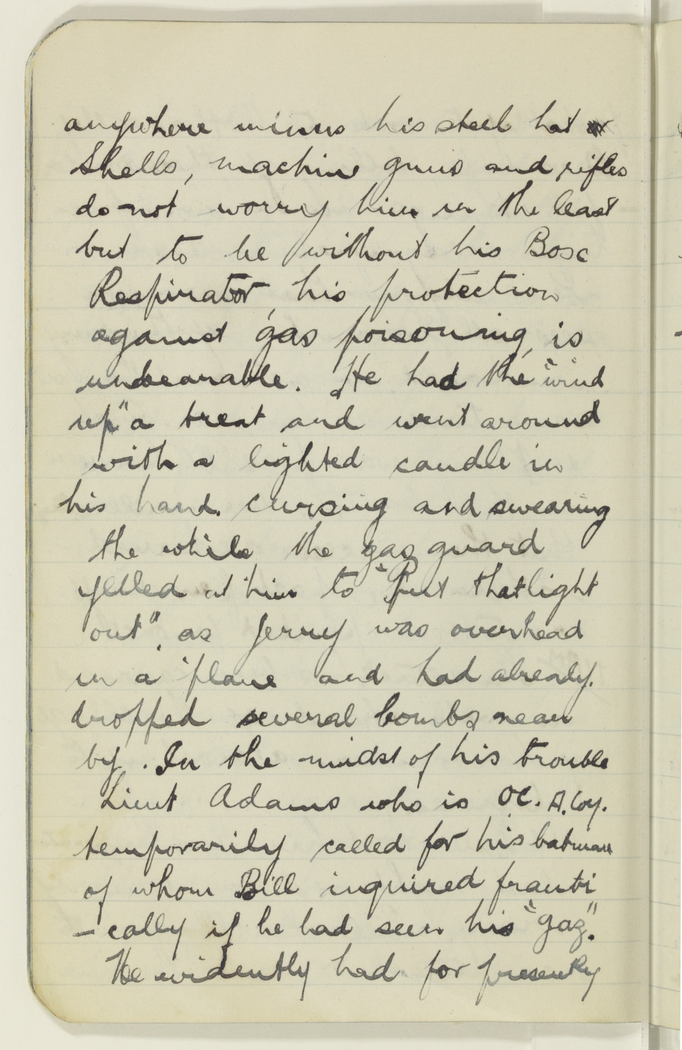 anywhere minus his steel hat
Shells, machine guns and rifles
do not worry him in the least
but to be without his Box
Respirator, his protection
against gas poisoning, is
unbearable. He had the "wind
up" a treat and went around
with a lighted candle in
his hand cursing and swearing
the while the gas guard
yelled at him to "Put that light
out", as Jerry was overhead
in a 'plane and had already
dropped several bombs near
by. In the midst of his trouble
Lieut Adams who is OC. A. Coy.
temporarily called for his batman
of whom Bill inquired franti
-cally if he had seen his "gas".
He evidently had for presently